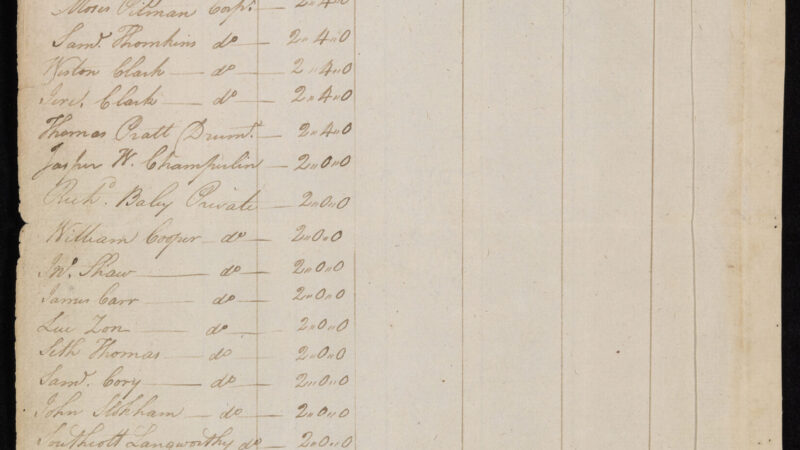 Moses Pitman Corpl. 2"4"0
Saml. Thomkins do 2"4"0
Weston Clark do 2"4"0
Jere. Clark do 2"4"0
Thomas Pratt (Drumr. 2"4"0
Josher W. Champerlin 2"0"0
Richd. Baley Private 2"0"0
William Cooper do 2"0"0
Jno. Shaw do 2"0"0
James Carr do 2"0"0
do 2"0"0
Seth Thomas do 2"0"0
Saml. Cory do 2"0"0
John do 2"0"0
Southcott Langworthy do 2"0"0